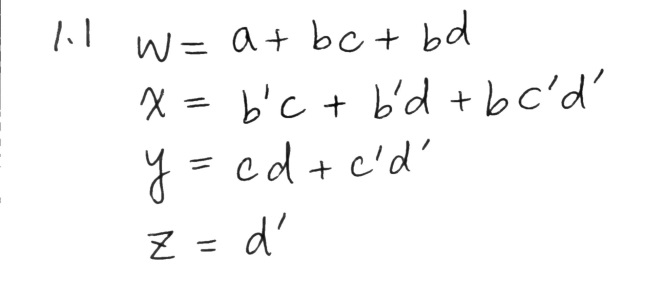 1.1 W = a + bc + bd
x = b'c + b'd + bc'd'
y = cd + c'd'
z = d'